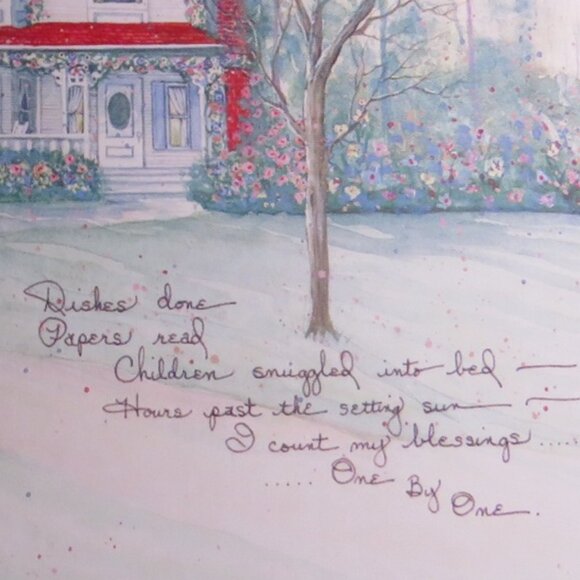 Dishes done
Papers read
Children snuggled into bed —
Hours past the setting sun —
I count my blessings .....
..... One By One.